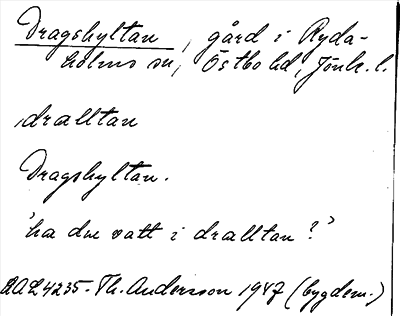 Dragshyltan, gård i Ryda-
holms sn, Östbo hd, Jönk. l.
dralltan
Dragshyltan.
'ha du vatt i dralltan?'
AAL 4235. Th. Andersson 1947 (bygdem.)